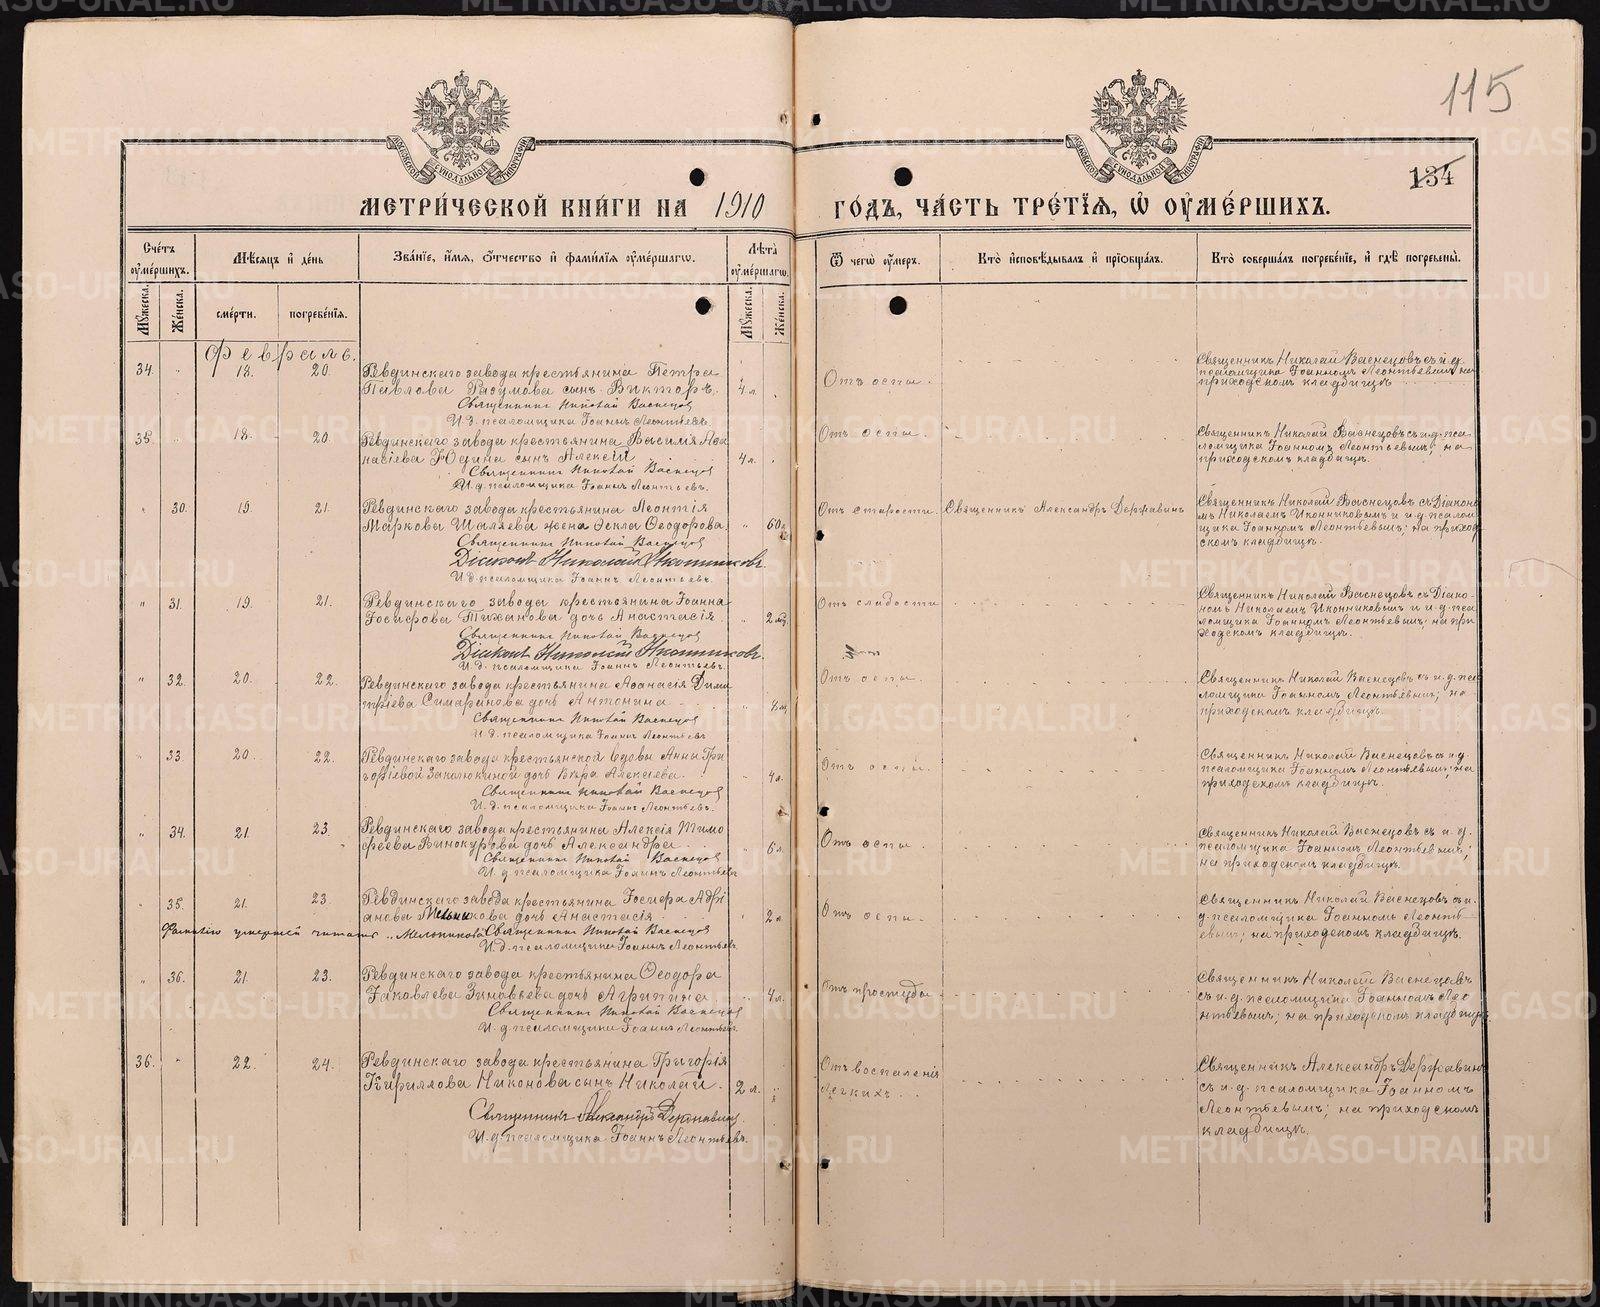 115
134
МЕТРИ́ЧЕСКОЙ КНИ́ГИ НА 1910 ГО́ДЪ, ЧА́СТЬ ТРЕ́ТІѦ, Ѡ҆ ОУ҆МЕ́РШИХЪ.
Сче́тъ оу҆ме́ршихъ.
Мꙋ́жеска.
Же́нска.
Мѣ́сяцъ и҆ де́нь
сме́рти.
погребе́нїя.
Зва́нїе, и҆́мя, ѻ҆́тчество и҆ фами́лїя оу҆ме́ршагѡ.
Лѣ́та оу҆ме́ршагѡ.
Мꙋ́жеска.
Же́нска.
Ѿ чегѡ̀ оу҆́меръ.
Кто̀ и҆сповѣ́дывалъ и҆ прїѡбща́лъ.
Кто̀ соверша́лъ погребе́нїе, и҆ гдѣ̀ погребены̀.
Февраль.
34. " 18. 20. Ревдинскаго завода крестьянина Петра
Павлова Разумова сынъ Викторъ. 4 л.
Священникъ Николай Васнецов
И. д. псаломщика Іоаннъ Леонтьевъ.
Отъ оспы.
Священникъ Николай Васнецовъ съ и. д.
псаломщика Іоанномъ Леонтьевымъ; на
приходскомъ кладбищѣ.
35. " 18. 20. Ревдинскаго завода крестьянина Василія Аѳа
насіева Юдина сынъ Алексій. 4 л.
Священникъ Николай Васнецов
И. д. псаломщика Іоаннъ Леонтьевъ.
Отъ оспы.
Священникъ Николай Васнецовъ съ и. д. пса
ломщика Іоанномъ Леонтьевымъ; на
приходскомъ кладбищѣ.
" 30. 19. 21. Ревдинскаго завода крестьянина Леонтія
Маркова Шаляева жена Ѳекла Ѳеодорова. " 60 л.
Священникъ Николай Васнецов
Діаконъ Николай Иконниковъ
И. д. псаломщика Іоаннъ Леонтьевъ.
Отъ старости. Священникъ Александръ Державинъ
Священникъ Николай Васнецовъ съ Діакон
омъ Николаемъ Иконниковымъ и и. д. псалом
щика Іоанномъ Леонтьевымъ; на приход
скомъ кладбищѣ.
" 31. 19. 21. Ревдинскаго завода крестьянина Іоанна
Іосифова Тиханова дочь Анастасія.
Священникъ Николай Васнецов
Діаконъ Николай Иконниковъ.
И. д. псаломщика Іоаннъ Леонтьевъ.
Отъ слабости
Священникъ Николай Васнецовъ съ Діако
номъ Николаемъ Иконниковымъ и и. д. пса
ломщика Іоанномъ Леонтьевымъ; на при
ходскомъ кладбищѣ.
" 32. 20. 22. Ревдинскаго завода крестьянина Аѳанасія Дими
тріева Симаранова дочь Антонина
Священникъ Николай Васнецов
И. д. псаломщика Іоаннъ Леонтьевъ
Отъ оспы.
Священникъ Николай Васнецовъ съ и. д. пса
ломщика Іоанномъ Леонтьевымъ; на
приходскомъ кладбищѣ.
" 33. 20. 22. Ревдинскаго завода крестьянской вдовы Анны Гри
горіевой Закалюкиной дочь Вѣра Алексіева. " 4 л.
Священникъ Николай Васнецов
И. д. псаломщика Іоаннъ Леонтьевъ.
Отъ оспы.
Священникъ Николай Васнецовъ съ и. д.
псаломщика Іоанномъ Леонтьевымъ; на
приходскомъ кладбищѣ.
" 34. 21. 23. Ревдинскаго завода крестьянина Алексія Тимо
феева Винокурова дочь Александра. 6 л.
Священникъ Николай Васнецов
И. д. псаломщика Іоаннъ Леонтьевъ
Отъ оспы.
Священникъ Николай Васнецовъ съ и. д.
псаломщика Іоанномъ Леонтьевымъ;
на приходскомъ кладбищѣ.
" 35. 21. 23. Ревдинскаго завода крестьянина Іосифа Адрі
анова Мельникова дочь Анастасія. " 2 л.
Фамилію умершей читать „Мельникова"
Священникъ Николай Васнецов
И. д. псаломщика Іоаннъ Леонтьевъ.
Отъ оспы.
Священникъ Николай Васнецовъ съ и.
д. псаломщика Іоанномъ Леонть
евымъ; на приходскомъ кладбищѣ.
" 36. 21. 23. Ревдинскаго завода крестьянина Ѳеодора
Іаковлева Зиновьева дочь Агрипина 4 л.
Священникъ Николай Васнецов
И. д. псаломщика Іоаннъ Леонтьевъ.
Отъ простуды
Священникъ Николай Васнецовъ
съ и. д. псаломщика Іоанномъ Лео
нтьевымъ; на приходскомъ кладбищѣ
36. " 22. 24. Ревдинскаго завода крестьянина Григорія
Кириллова Никонова сынъ Николай. 2 л.
Священникъ Александръ Державинъ.
И. д. псаломщика Іоаннъ Леонтьевъ.
Отъ воспаленія
легкихъ.
Священникъ Александръ Державинъ
съ и. д. псаломщика Іоанномъ
Леонтьевымъ; на приходскомъ
кладбищѣ.
METRIKI.GASO-URAL.RU